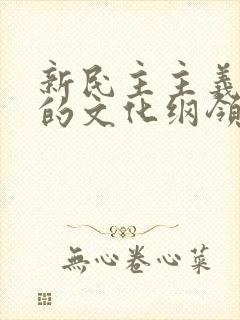 新民主主義
的文化纲领
無心卷心菜